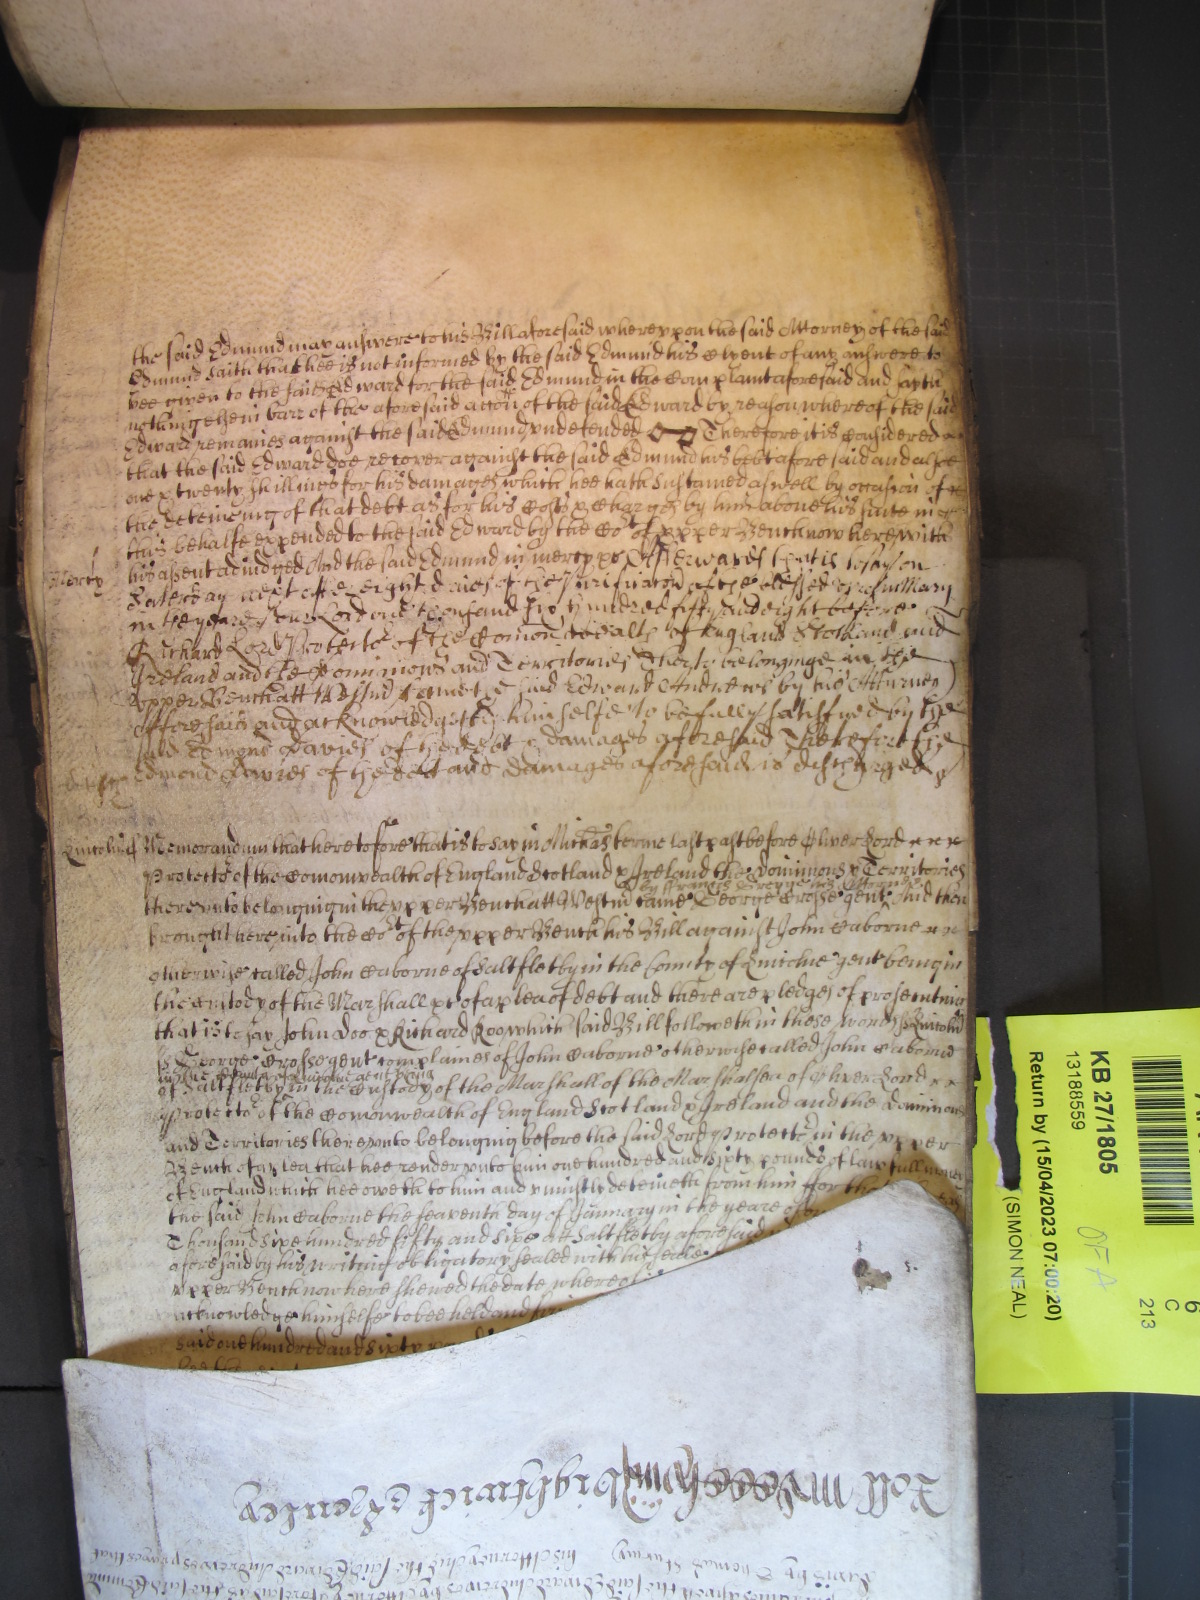 the said Edmund may answere to his Bill aforesaid whereupon the said Attorney of the said
Edmund saith that hee is not informed by the said Edmund his Clyent of any answere to
bee given to the said Edward for the said Edmund in the Complaint aforesaid and sayth
nothing in barr of the aforesaid accon of the said Edward by reason whereof the said
Edward remaines against the said Edmund undefended Therefore it is Considered
that the said Edward doe recover against the said Edmund his debt aforesaid and alsoe
one & twenty shillings for his damages which hee hath sustained aswell by occasion of
the deteineing of that debt as for his Costs & Charges by him about his suite in
this behalfe expended to the said Edward by the Cot of upper Bench now here with
his assent adjudged And the said Edmund in mercy &c Afterwards that is to say on
Mercy
Saterday next after eight daies of the Purificacon of the blessed virgin Mary
in the yeare of our Lord one thousand six hundred fifty and eight before
Richard Lord Protector of the Comonwealth of England Scotland and
Ireland and the Dominions and Territories thereto belonginge in the
Upper Bench att Westmr came the said Edward Andrews by his Atturney
afforesaid and acknowledgeth himselfe to be fully satisfyed by the
said Edmond Davies of the debt & damages aforesaid Therefore the
Edmond Davies of the debt and damages aforesaid is discharged
Lincolne ss Memorandum that heretofore that is to say in Michas terme last past before Oliver Lord
Protector of the Comonwealth of England Scotland & Ireland the Dominions & Territories
by Francis his Attorney
thereunto belonging in the upper Bench att Westmr came George Crosse gent And then
brought here into the Cot of the upper Bench his Bill against John Caborne
otherwise called John Caborne of Saltfletby in the County of Lincolne gent being in
the custody of the Marshall &c of a plea of debt and there are pledges of prosecuting
that is to say John Doo & Richard Roo which said Bill followeth in these words ss Lincolne
ss George Crosse gent complaines of John Caborne otherwise called John Caborne
in the County of Lincolne gent being
of Saltfletby in the Custody of the Marshall of the Marshalsea of Oliver Lord
Protector of the Comonwealth of England Scotland & Ireland and the Dominions
and Territories thereunto belonging before the said Lord Protector in the upper
Bench of a plea that hee render unto him one hundred and sixty pounds of lawfull money
of England which hee oweth to him and unjustly deteineth from him for that
the said John Caborne the seaventh day of January in the yeare of
Thousand sixe hundred fifty and sixe att Saltfletby aforesaid
aforesaid by his writing obligatory sealed with his seale
upper Bench now here shewed the date whereof
acknowledge himselfe to bee held and
said one hundred and sixty
Roll Brightwick & Exenley
his Attorney And the said Edward Andrewes prayes that
KB 27/1805
13188559
Return by (15/04/2023 07:00:20)
(SIMON NEAL)
OFA
6
C
213